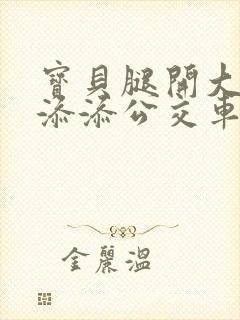 寶貝腿開大
添添公交車
金麗溫